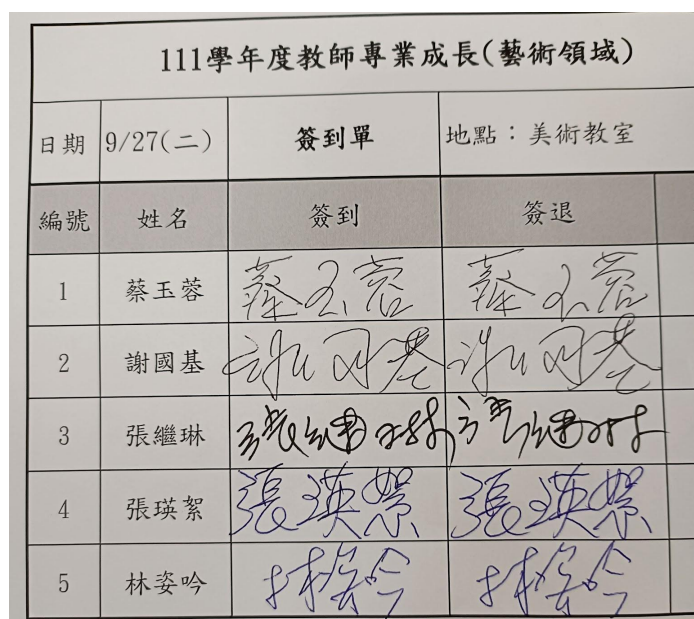 111學年度教師專業成長(藝術領域)
日期 9/27(二) 簽到單 地點：美術教室
編號 姓名 簽到 簽退
1 蔡玉蓉 蔡玉蓉 蔡玉蓉
2 謝國基 謝國基 謝國基
3 張繼琳 張繼琳 張繼琳
4 張瑛絮 張瑛絮 張瑛絮
5 林姿吟 林姿吟 林姿吟